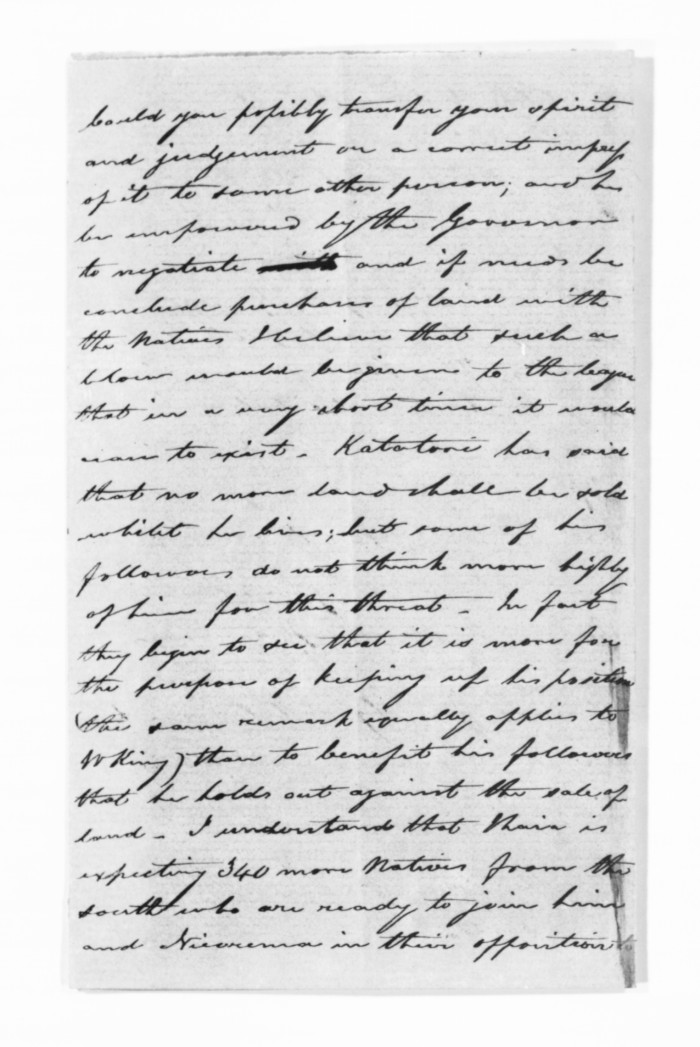 Could you possibly transfer your spirit
and judgement or a correct impress
of it to some other person; and he
be empowered by the Governor
to negotiate and if needs be
conclude purchases of land with
the Natives I believe that such a
blow would be given to the league
that in a very short time it would
cease to exist. Katatore has said
that no more land shall be sold
whilst he lives; but some of his
followers do not think more highly
of him for this threat. In fact
they begin to see that it is more for
the purpose of keeping up his position
(the same remark equally applies to
W King) than to benefit his followers
that he holds out against the sale of
land. I understand that Ihaia is
expecting 340 more Natives from the
south who are ready to join him
and Nicorima in their opposition to